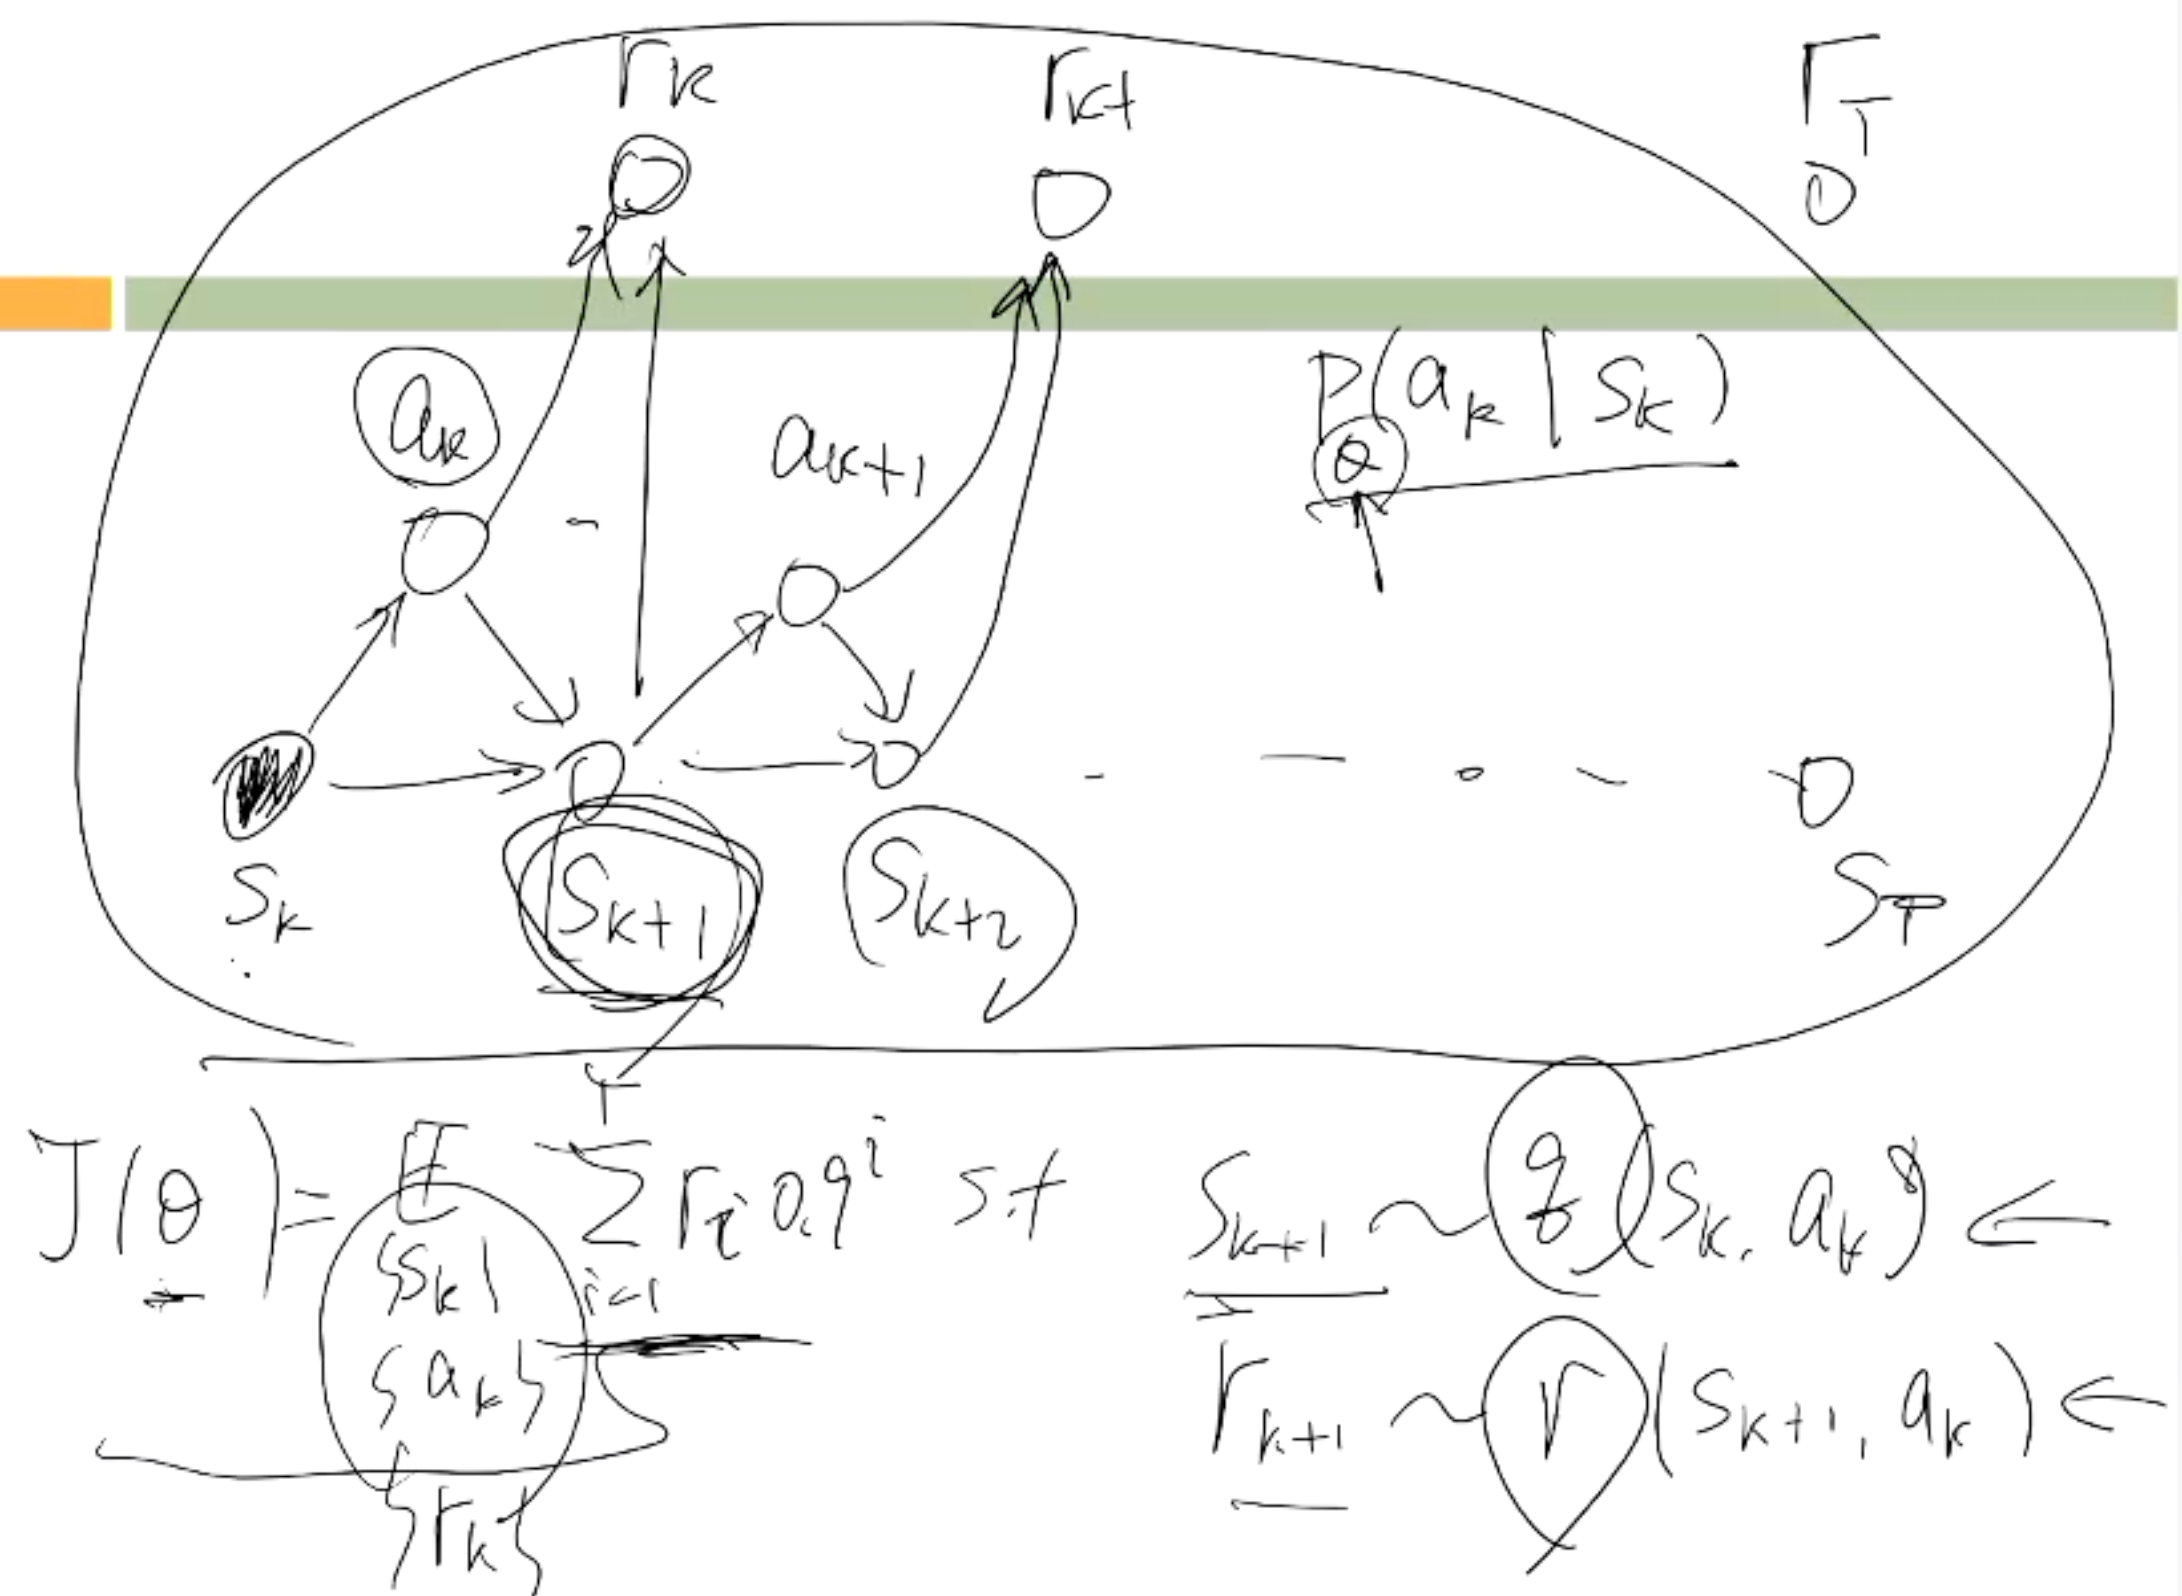 r_k r_{k+ r_T
a_k a_{k+1} P_θ(a_k | s_k)
s_k s_{k+1} s_{k+2} s_T
J(θ) = E_{{s_k} {a_k} {r_k}} Σ_{i=1}^{T} r_i 0.9^i s.t s_{k+1} ~ q(s_k, a_k) ←
r_{k+1} ~ r(s_{k+1}, a_k) ←